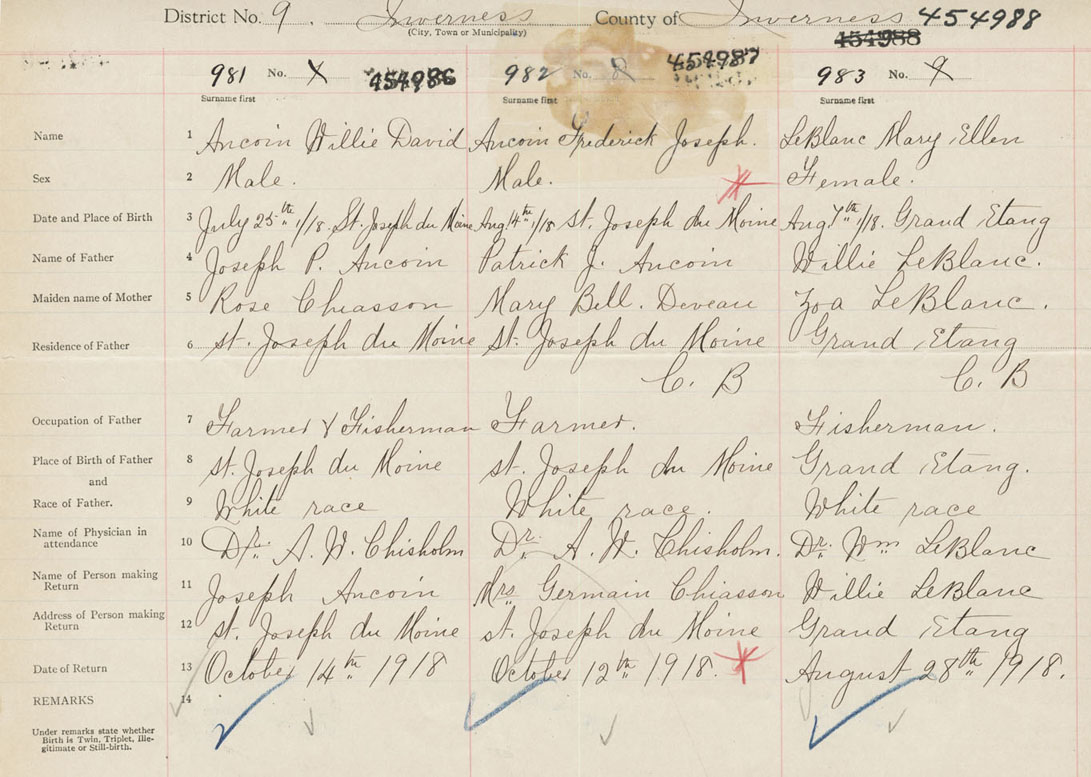 District No. 9. Inverness County of Inverness 454988
(City, Town or Municipality)
454988
981 No. 454986 982 No. 8 454987 983 No. 9
Surname first Surname first Surname first
Name 1 Aucoin Willie David Aucoin Frederick Joseph. LeBlanc Mary Ellen
Sex 2 Male. Male. Female.
Date and Place of Birth 3 July 25th 1/18. St. Joseph du Moine Aug. 4th 1/18 St. Joseph du Moine Aug. 7th 1/18. Grand Etang
Name of Father 4 Joseph P. Aucoin Patrick J. Aucoin Willie LeBlanc.
Maiden name of Mother 5 Rose Chiasson Mary Bell. Deveau Zoa LeBlanc.
Residence of Father 6 St. Joseph du Moine St. Joseph du Moine Grand Etang
C. B C. B
Occupation of Father 7 Farmer & Fisherman Farmer. Fisherman.
Place of Birth of Father 8 St. Joseph du Moine St. Joseph du Moine Grand Etang.
and
Race of Father. 9 White race White race. White race
Name of Physician in
attendance 10 Dr. A. W. Chisholm Dr. A. W. Chisholm. Dr. Wm LeBlanc
Name of Person making
Return 11 Joseph Aucoin Mrs Germain Chiasson Willie LeBlanc
Address of Person making
Return 12 St. Joseph du Moine St. Joseph du Moine Grand Etang
Date of Return 13 October 14th 1918 October 12th 1918. August 28th 1918.
REMARKS 14
Under remarks state whether
Birth is Twin, Triplet, Ille-
gitimate or Still-birth.